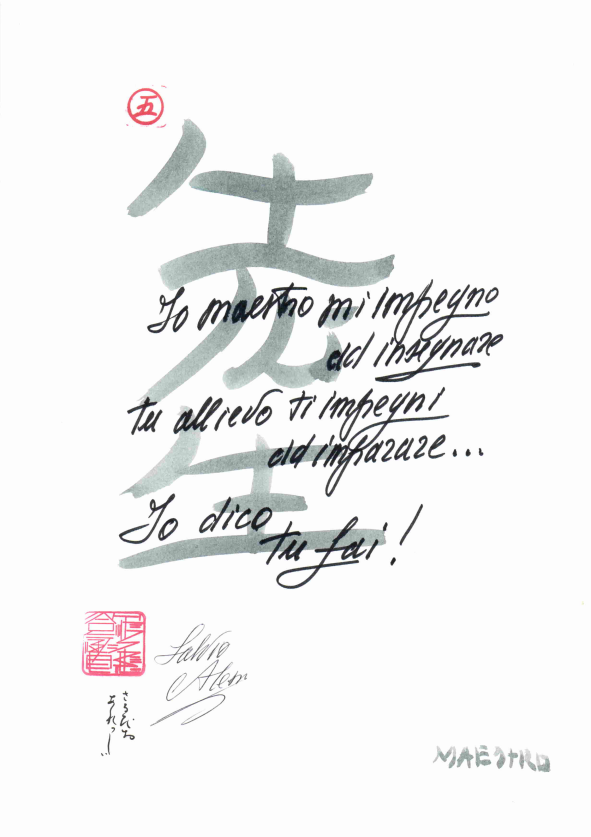 五
先生
Io maestro mi impegno
ad insegnare
tu allievo ti impegni
ad imparare...
Io dico
tu fai!
Salvio
MAESTRO